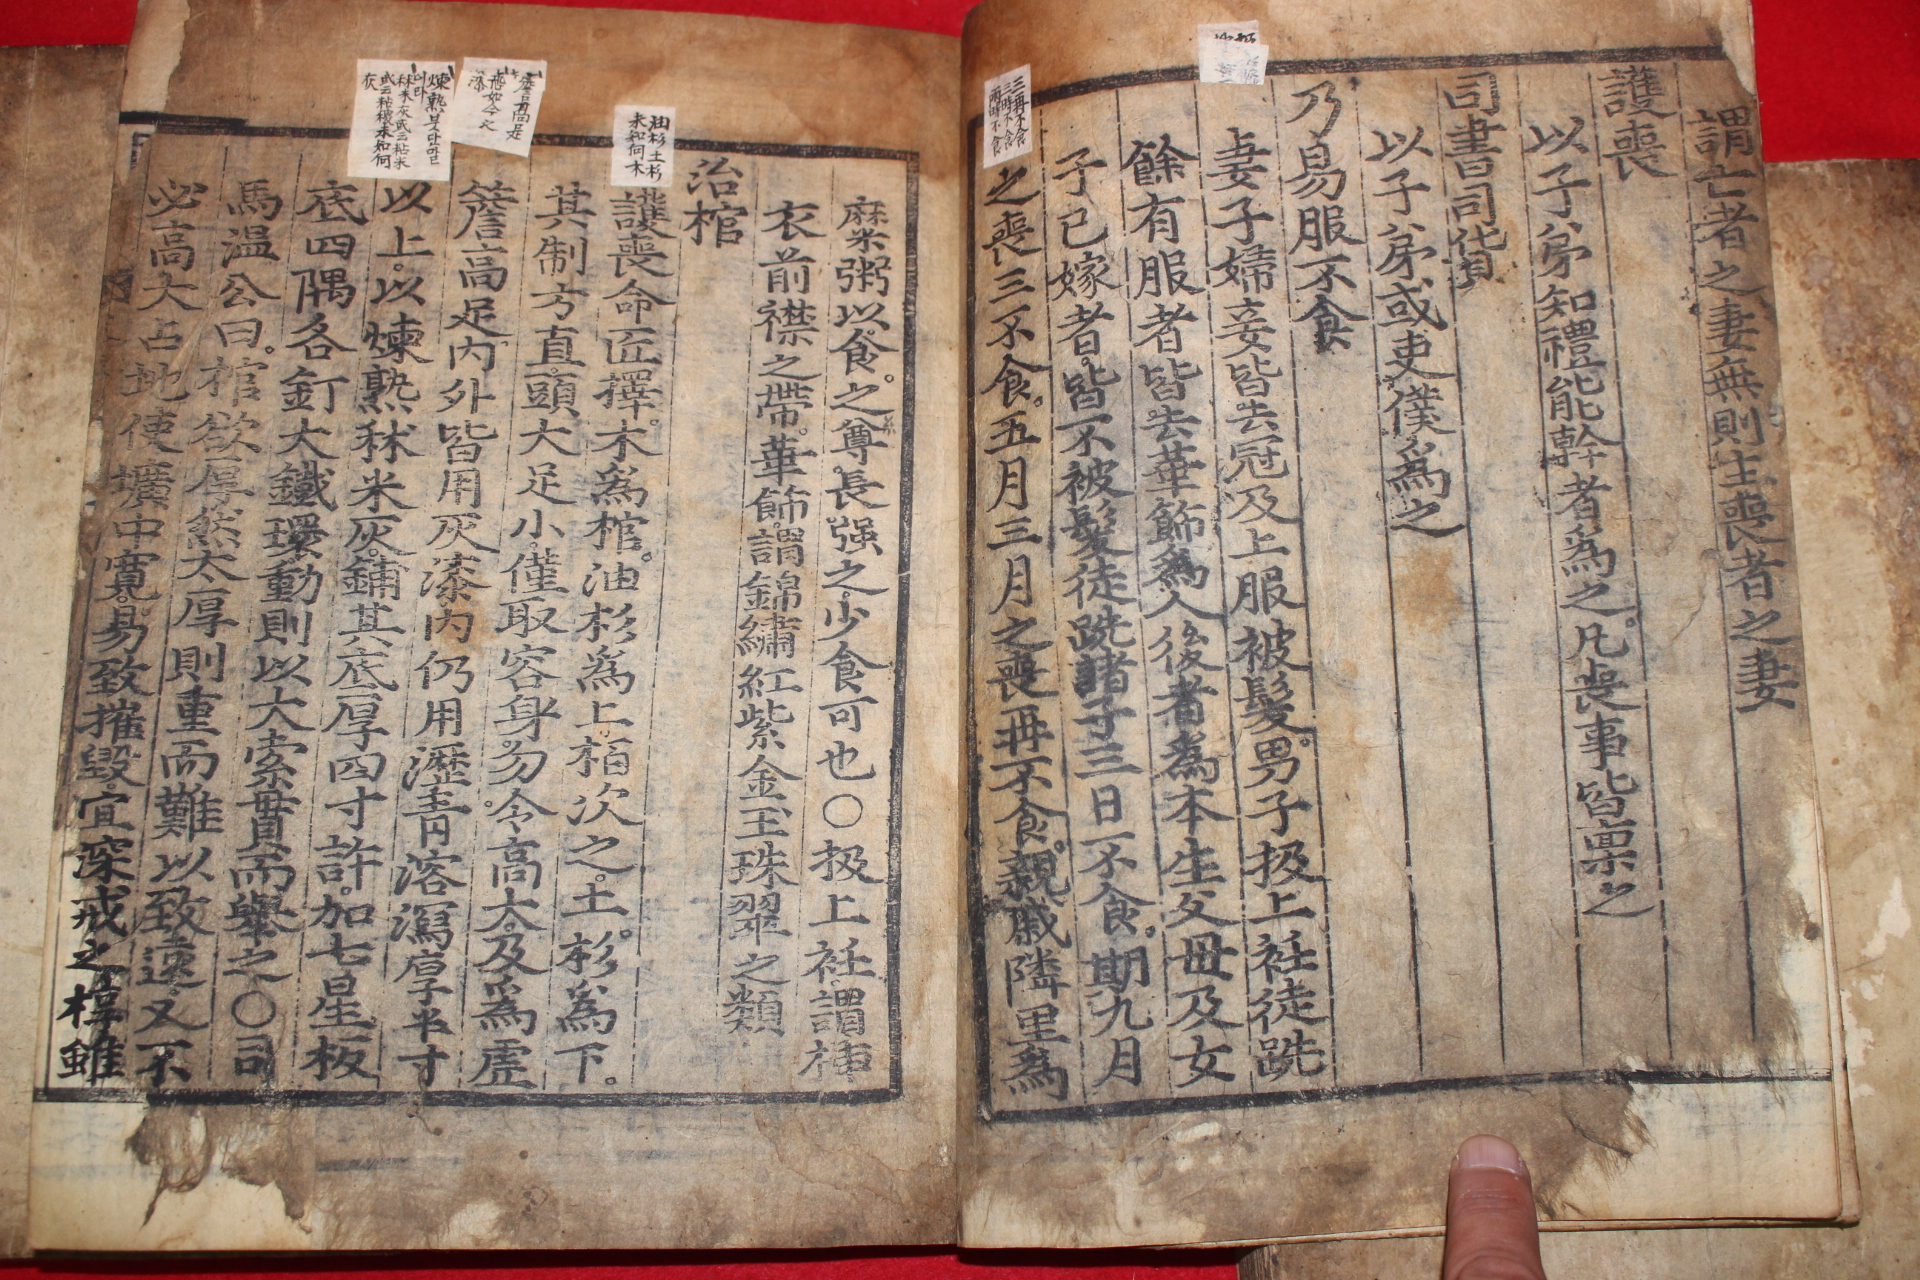 謂亡者之妻無則主喪者之妻
護喪
以子弟知禮能幹者為之凡喪事皆稟之
司書司貨
以子弟或吏僕爲之
乃易服不食
妻子婦妾皆去冠及上服被髮男子扱上衽徒跣
餘有服者皆去華飾為人後者為本生父母及女
子已嫁者皆不被髮徒跣諸子三日不食期九月
之喪三不食五月三月之喪再不食親戚隣里爲
三再不食
三時不食
兩時不食
糜粥以食之尊長强之少食可也○扱上衽謂揷
衣前襟之帶華飾謂錦繡紅紫金玉珠翠之類
治棺
護喪命匠擇木爲棺油杉爲上栢次之土杉為下
其制方直頭大足小僅取容身勿令高大及為虛
簷高足內外皆用灰漆內仍用瀝靑溶瀉厚半寸
以上以煉熟秫米灰鋪其底厚四寸許加七星板
底四隅各釘大鐵環動則以大索貫而舉之○司
馬溫公曰棺欲厚然太厚則重而難以致遠又不
必高大占地使壙中寬易致摧毀宜深戒之椁雖
油杉土杉
未知何木
煉熟
秫米灰或云粘米
或云粘稷未知何
灰